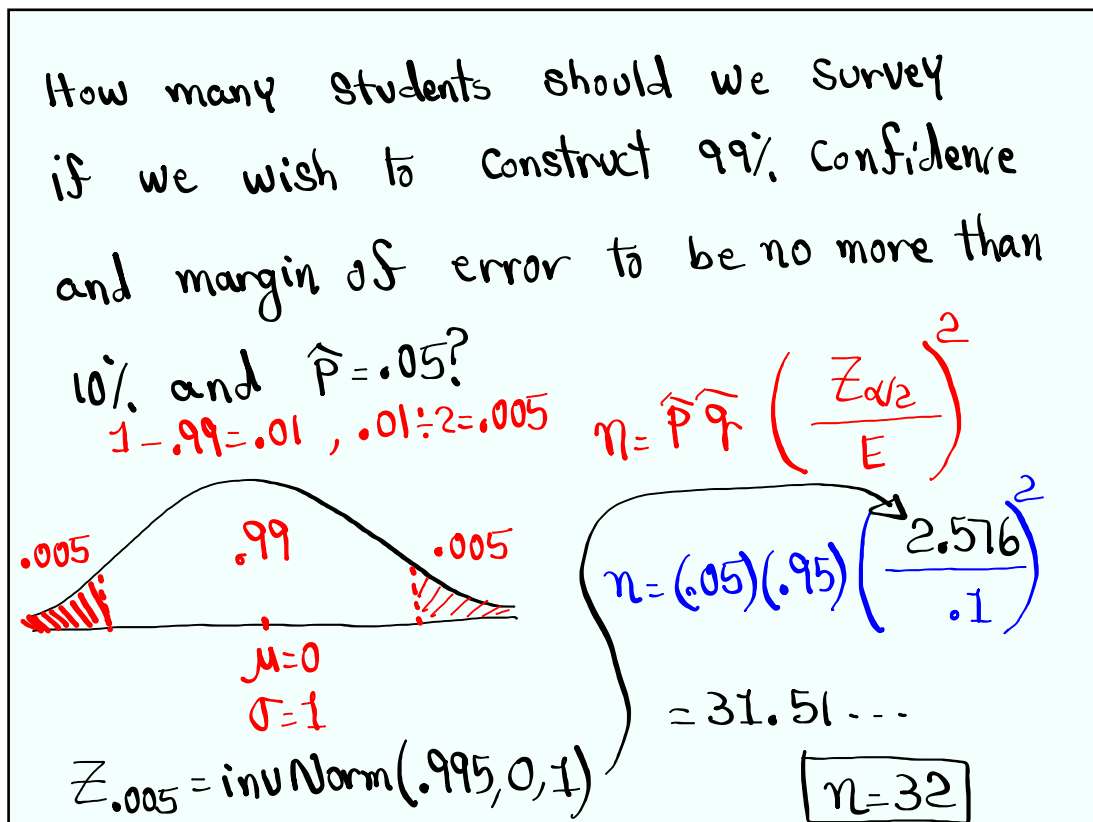 How many students should we survey
if we wish to construct 99% confidence
and margin of error to be no more than
10% and p̂ = .05?
1 - .99 = .01 , .01 ÷ 2 = .005
n = p̂ q̂ ( Z α/2 / E )²
.005 .99 .005
n = (.05)(.95) ( 2.576 / .1 )²
μ = 0
σ = 1
= 31.51 ...
Z.005 = invNorm(.995, 0, 1)
n = 32